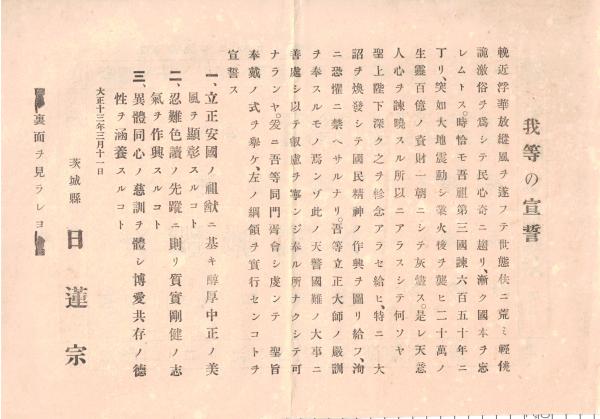 我等の宣誓
輓近浮華放縱風ヲ遂フテ世態佚ニ荒ミ輕佻
詭激俗ヲ爲シテ民心奇ニ趨リ、漸ク國本ヲ忘
レムトス。時恰モ吾祖第三國諫六百五十年ニ
丁リ、突如大地震動シ業火後ヲ襲ヒ二十萬ノ
生靈百億ノ資財一朝ニシテ灰燼ス。是レ天意
人心ヲ諫曉スル所以ニアラスシテ何ソヤ
聖上陛下深ク之ヲ軫念アラセ給ヒ、特ニ 大
詔ヲ煥發シテ國民精神ノ作興ヲ圖リ給フ、洵
ニ恐懼ニ禁ヘサルナリ。吾等立正大師ノ嚴訓
ヲ奉スルモノ焉ンゾ此ノ天警國難ノ大事ニ
善處シ以テ叡慮ヲ寧ンジ奉ル所ナクシテ可
ナランヤ。爰ニ吾等同門胥會シ虔ンテ 聖旨
奉戴ノ式ヲ擧ケ、左ノ綱領ヲ實行センコトヲ
宣誓ス
一、立正安國ノ祖猷ニ基キ醇厚中正ノ美
風ヲ顯彰スルコト
二、忍難色讀ノ先蹤ニ則リ質實剛健ノ志
氣ヲ作興スルコト
三、異體同心ノ慈訓ヲ體シ博愛共存ノ德
性ヲ涵養スルコト
大正十三年三月十一日
茨城縣 日蓮宗
裏面ヲ見ラレヨ